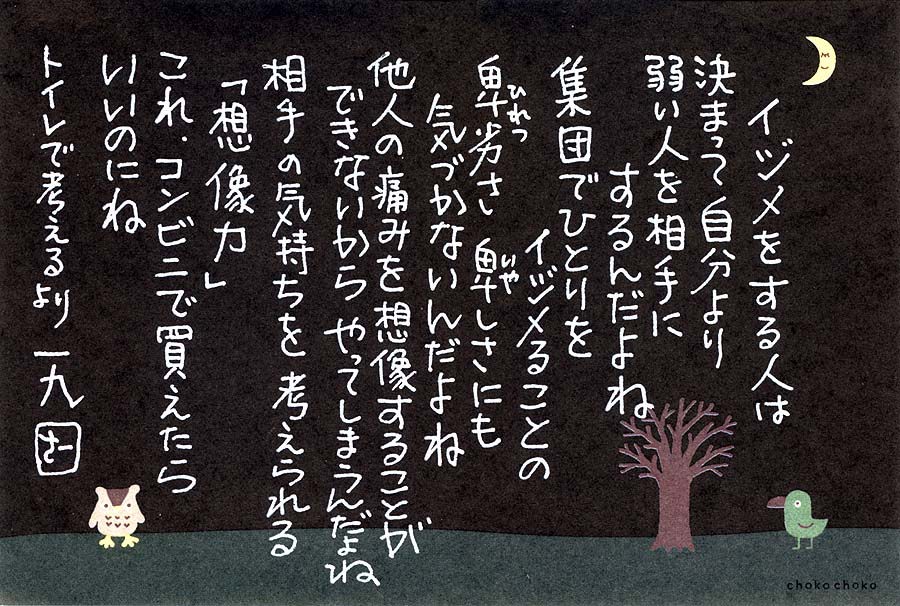 イヅメをする人は
決まって自分より
弱い人を相手に
するんだよね
集団でひとりを
イヅメることの
卑劣さ 卑しさにも
ひれつ
いや
気づかないんだよね
他人の痛みを想像することが
できないから やってしまうんだよね
相手の気持ちを 考えられる
「想像力」
これ、コンビニで買えたら
いいのにね
トイレで考えるより 一九
さー
choko choko